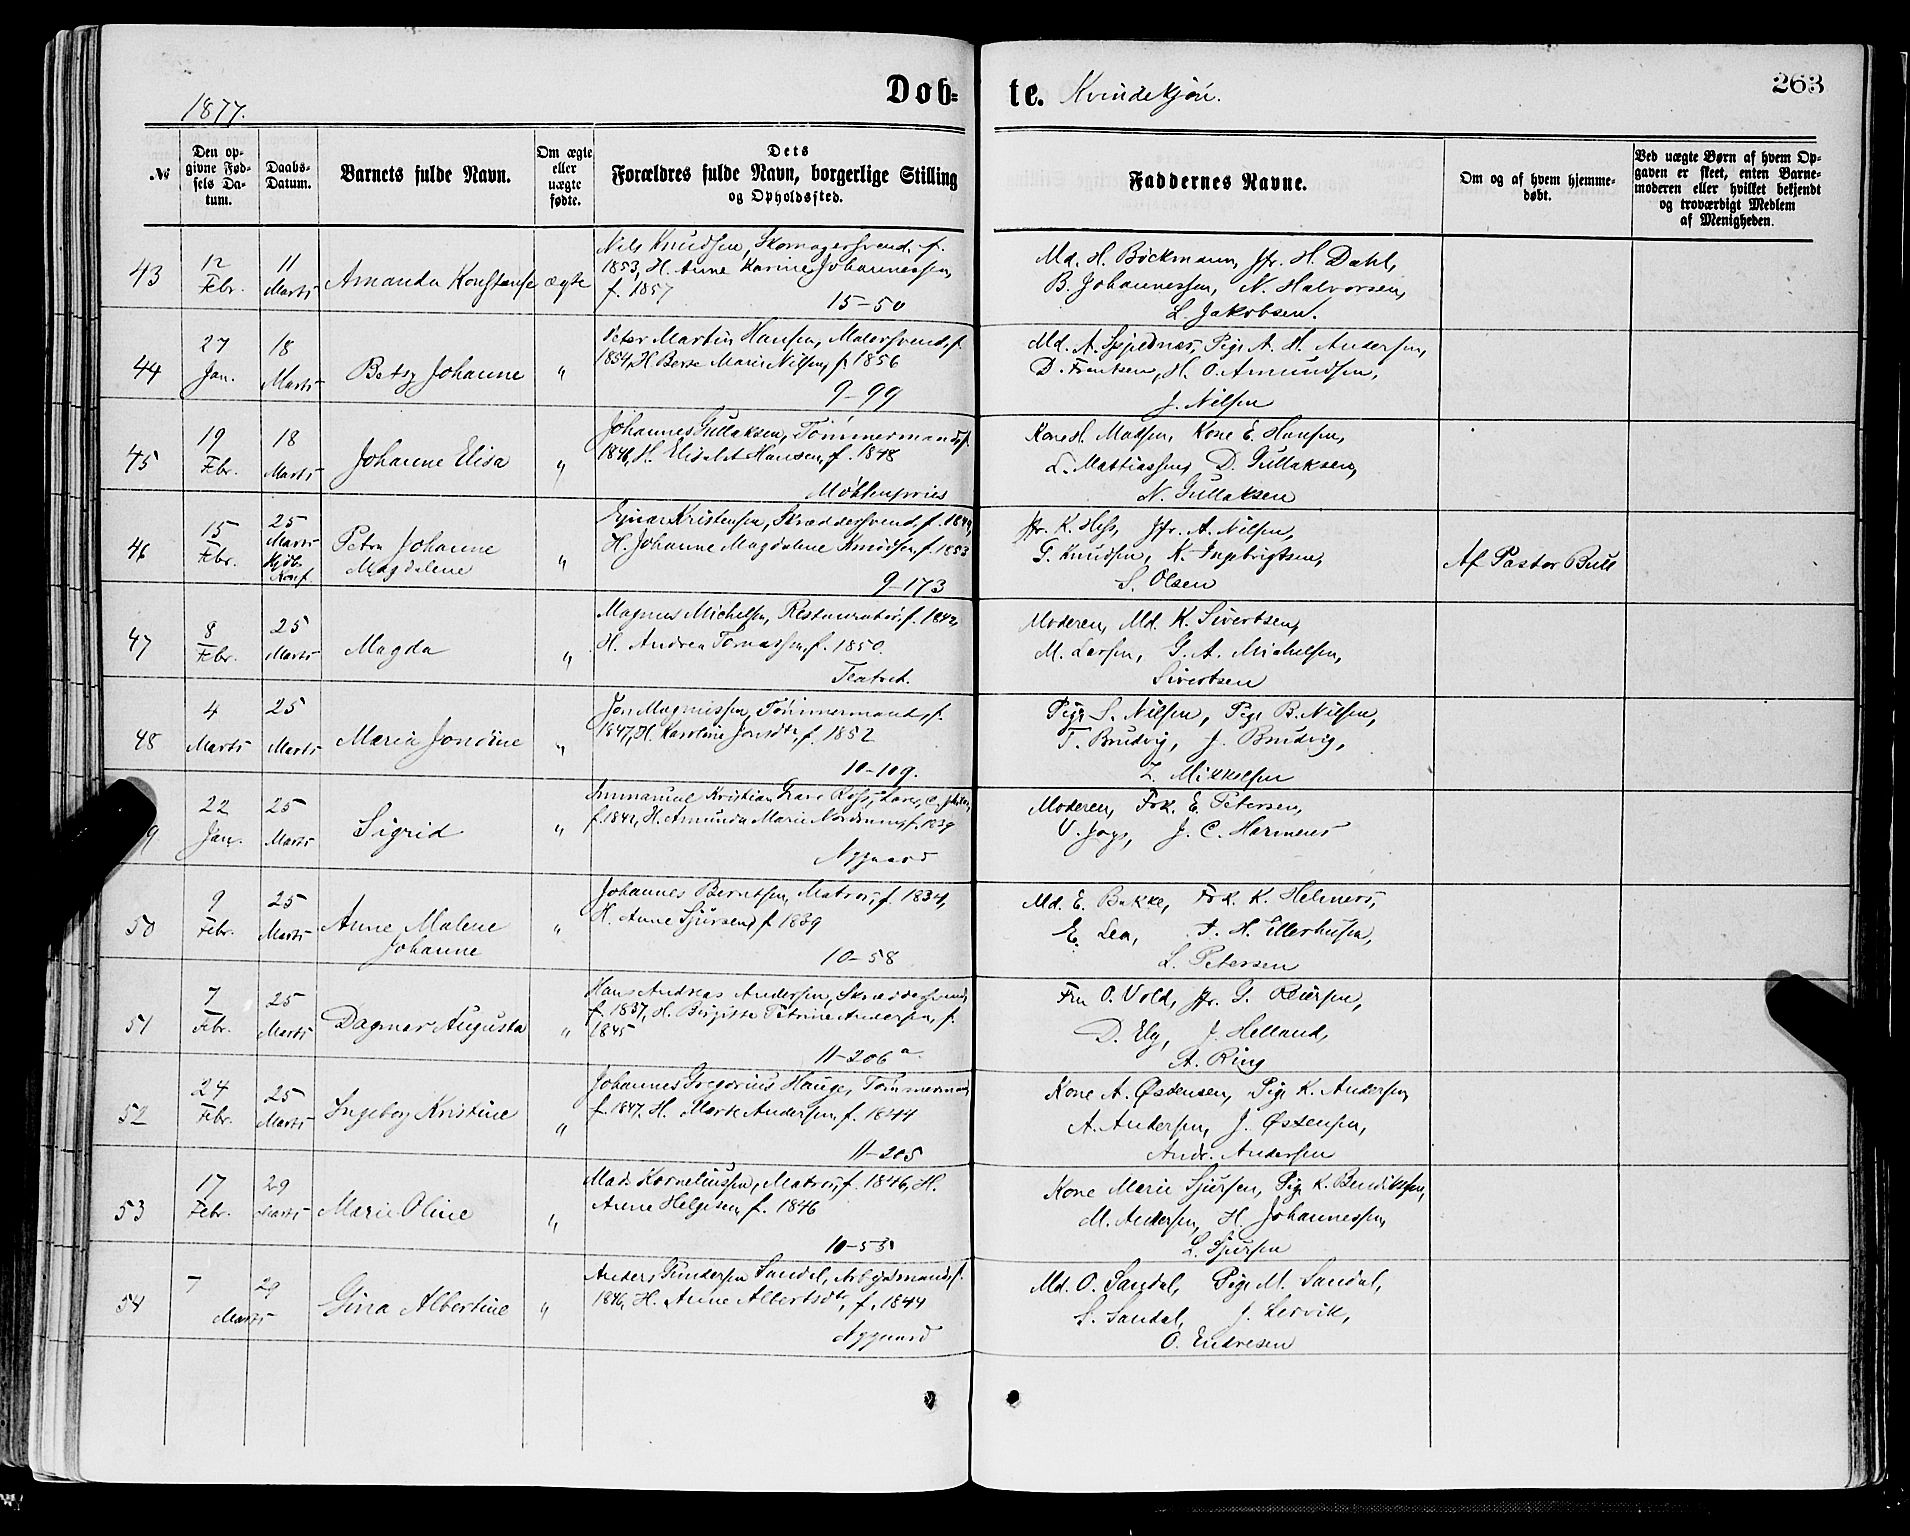 1877.
Døb=
te. Kvindekjøn.
263
№
Den op-
givne Fød-
sels Da-
tum.
Daabs-
Datum.
Barnets fulde Navn.
Om ægte
eller
uægte
fødte.
Dets
Forældres fulde Navn, borgerlige Stilling
og Opholdssted.
Faddernes Navne.
Om og af hvem hjemme-
døbt.
Ved uægte Børn af hvem Op-
gaven er skeet, enten Barne-
moderen eller hvilket bekjendt
og troværdigt Medlem
af Menigheden.
43
12 Febr.
11 Marts
Amanda Konstanse
ægte
Nils Knudsen, Skomagersvend, f.
1853, H. Anne Karine Johannessen,
f. 1857
15-50
Md. H. Böckmann, Jfr. H. Dahl,
B. Johannessen, N. Halvorsen,
L. Jakobsen.
44
27 Jan.
18 Marts
Betzy Johanne
"
Peter Martin Hansen, Malersvend, f.
1854, H. Berte Marie Nilsen, f. 1856
9-99
Md. A. Pige A. H. Andersen,
D. Frentsen, H. O. Amundsen,
J. Nilsen
45
19 Febr.
18 Marts
Johanne Elisa
"
Johannes Gullaksen, Tømmermand, f.
1846, H. Elisabet Hansen, f. 1848
Møhlenpriis
Kone H. Madsen, Kone E. Hansen,
L. Mattiassen, D. Gullaksen,
N. Gullaksen
46
15 Febr.
25 Marts
Kjøb.
Konf.
Petra Johanne
Magdalene
"
Ejnar Kristensen, Skræddersvend, f. 1849,
H. Johanne Magdalene Knudsen, f. 1853
9-173
Jfr. K. Hess, Jfr. A. Nilsen,
G. Knudsen, K. Ingebrigtsen,
S. Olsen
Af Pastor Bull
47
8 Febr.
25 Marts
Magda
"
Magnus Michelsen, Restauratør, f. 1842,
H. Andrea Tomassen, f. 1850.
Teatret.
Moderen, Md. K. Sivertsen,
M. Larsen, G. A. Michelsen,
Sivertsen
48
4 Marts
25 Marts
Maria Jondine
"
Jon Magnussen, Tømmermand, f.
1847, H. Karoline Jonsdtr, f. 1852
10-109.
Pige S. Nilsen, Pige B. Nilsen,
T. Brudvig, J. Brudvig,
Z. Mikkelsen
9
22 Jan.
25 Marts
Sigrid
"
Immanuel Kristian Grave Ross,
f. 1842, H. Amunda Marie f. 1839
Nygaard
Moderen, Frk. E. Petersen,
V. Joys, J. C. Harmens
50
9 Febr.
25 Marts
Anne Malene
Johanne
"
Johannes Berntsen, Matros, f. 1834,
H. Anne Sjursen, f 1839
10-58
Md. E. Bakke, Frk. K. Helmers,
E. Lea, A. H. Ellerhusen,
L. Petersen
51
7 Febr.
25 Marts
Dagmar Augusta
"
Hans Andreas Andersen, Skræddersvend,
f. 1837, H. Birgitte Petrine Andersen, f.
1845
11-206 a.
Fru O. Vold, Jfr. G. Reiersen,
D. Ely, J. Helland,
A. Ring
52
24 Febr.
25 Marts
Ingeborg Kristine
"
Johannes Gregorius Hauge, Tømmermand,
f. 1847, H. Marte Andersen, f. 1844
11-205
Kone A. Østensen, Pige K. Andersen,
A. Andersen, J. Østensen,
Andr. Andersen
53
17 Febr.
29 Marts
Marie Oline
"
Mads Korneliussen, Matros, f. 1846, H.
Anne Helgesen, f. 1846
10-55
Kone Marie Sjursen, Pige K. Bendiktsen,
M. Andersen, H. Johannessen,
L. Sjursen
54
7
29
Marts
Gina Albertine
"
Anders Gundersen Sandal, Arbejdsmand, f.
1846, H. Anne Albertsdtr, f. 1844
Nygaard
Md. O. Sandal, Pige M. Sandal,
S. Sandal, J. Lervik,
O. Endresen